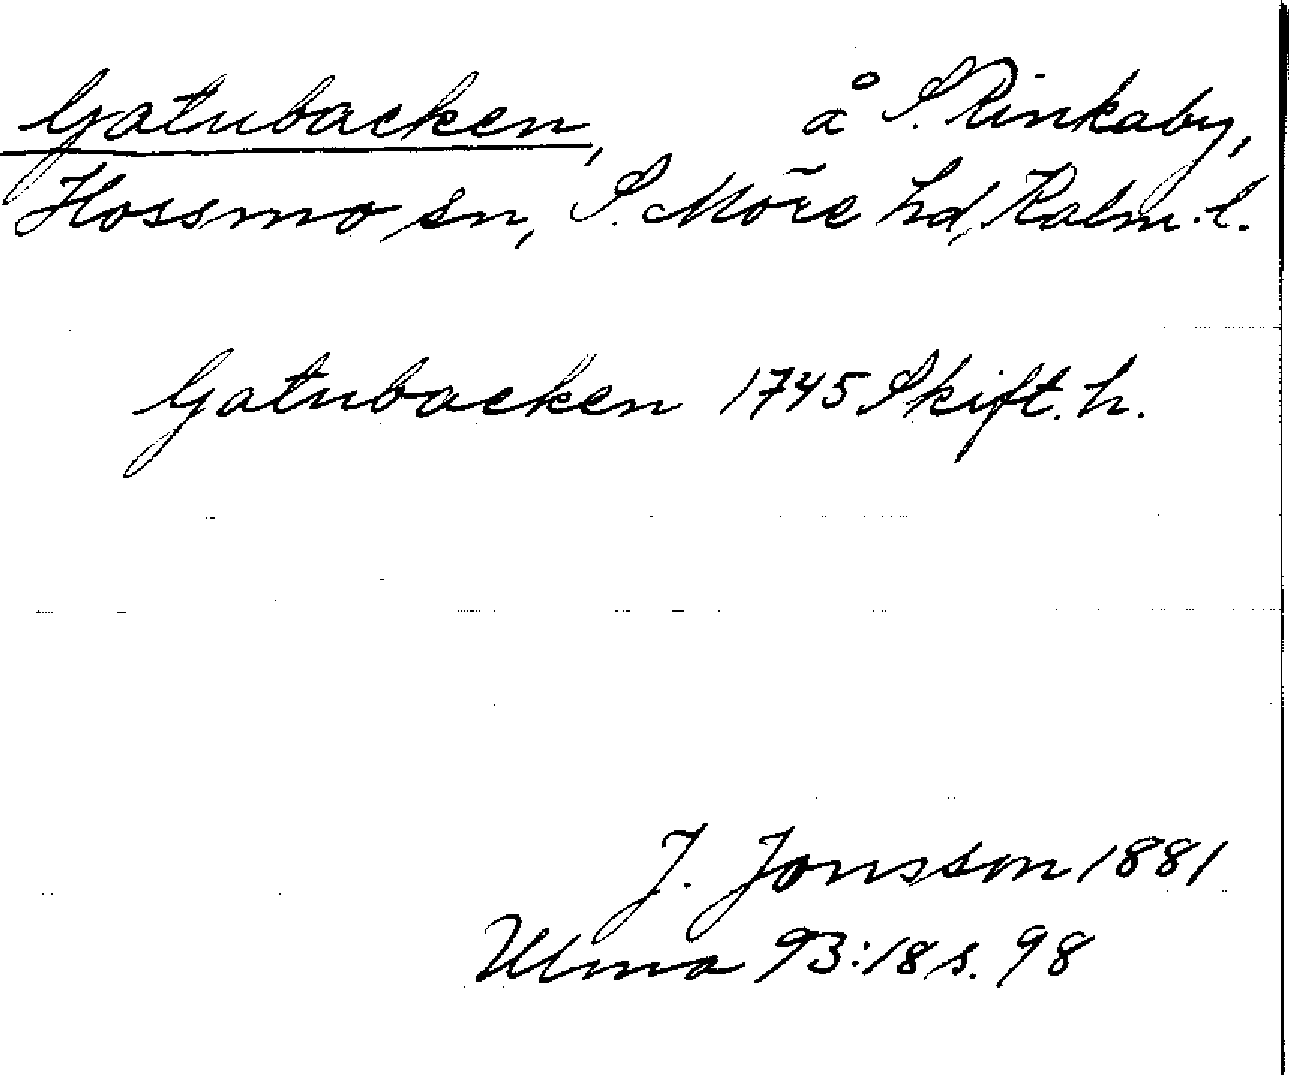 Gatubacken, å S. Rinkaby,
Hossmo sn, S. Möre hd, Kalm. l.
Gatubacken 1745 Skift. h.
J. Jonsson 1881
Ulma 93:18 s. 98